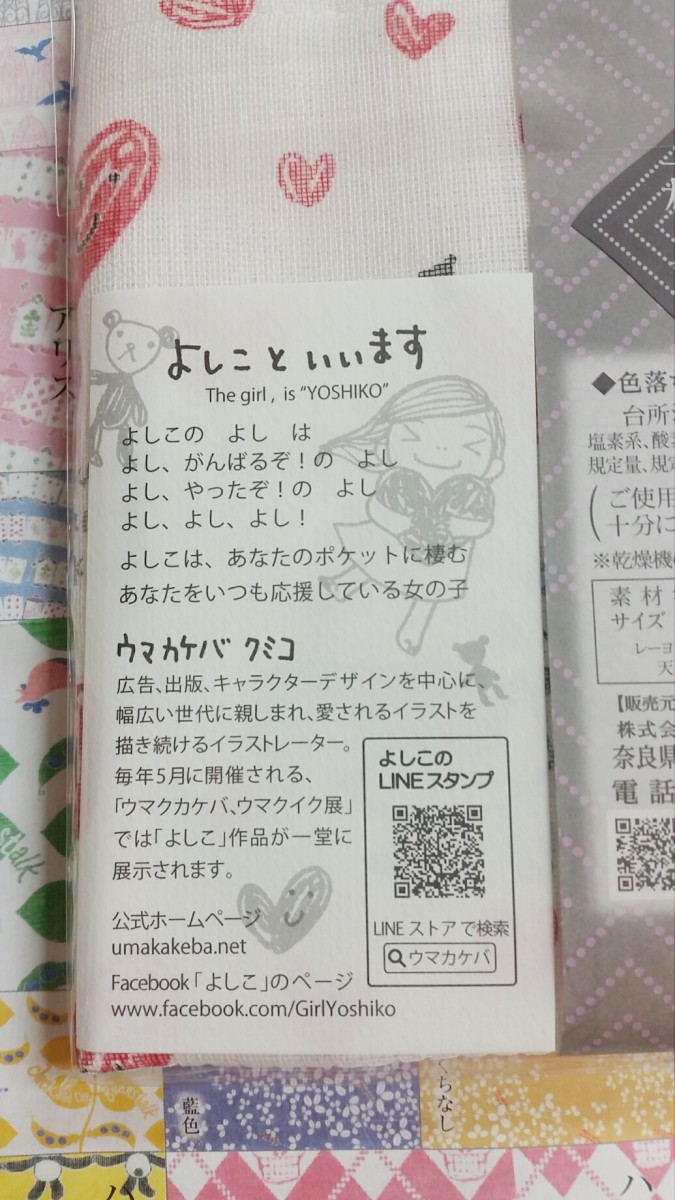 よしこといいます
The girl , is “YOSHIKO”
よしこの　よし　は
よし、がんばるぞ！の　よし
よし、やったぞ！の　よし
よし、よし、よし！
よしこは、あなたのポケットに棲む
あなたをいつも応援している女の子
ウマカケバ クミコ
広告、出版、キャラクターデザインを中心に、
幅広い世代に親しまれ、愛されるイラストを
描き続けるイラストレーター。
毎年5月に開催される、
「ウマクカケバ、ウマクイク展」
では「よしこ」作品が一堂に
展示されます。
公式ホームページ
umakakeba.net
Facebook「よしこ」のページ
www.facebook.com/GirlYoshiko
よしこの
LINEスタンプ
LINE ストアで検索
ウマカケバ
アリス
◆色落
台所
塩素系、酸
規定量、規
ご使用
十分に
※乾燥機
素材
サイズ
レーヨ
天
【販売元
株式会
奈良県
電話
藍色
くちなし
ハ
ハ